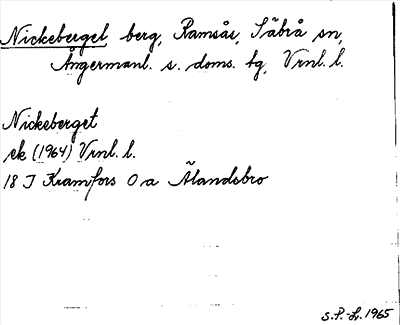 Nickeberget berg, Ramsås, Säbrå sn,
Ångermanl. s. doms. tg, Vrnl. l.
Nickeberget
ek (1964) Vrnl. l.
18 J Kramfors 0 a Älandsbro
S.P.-L. 1965